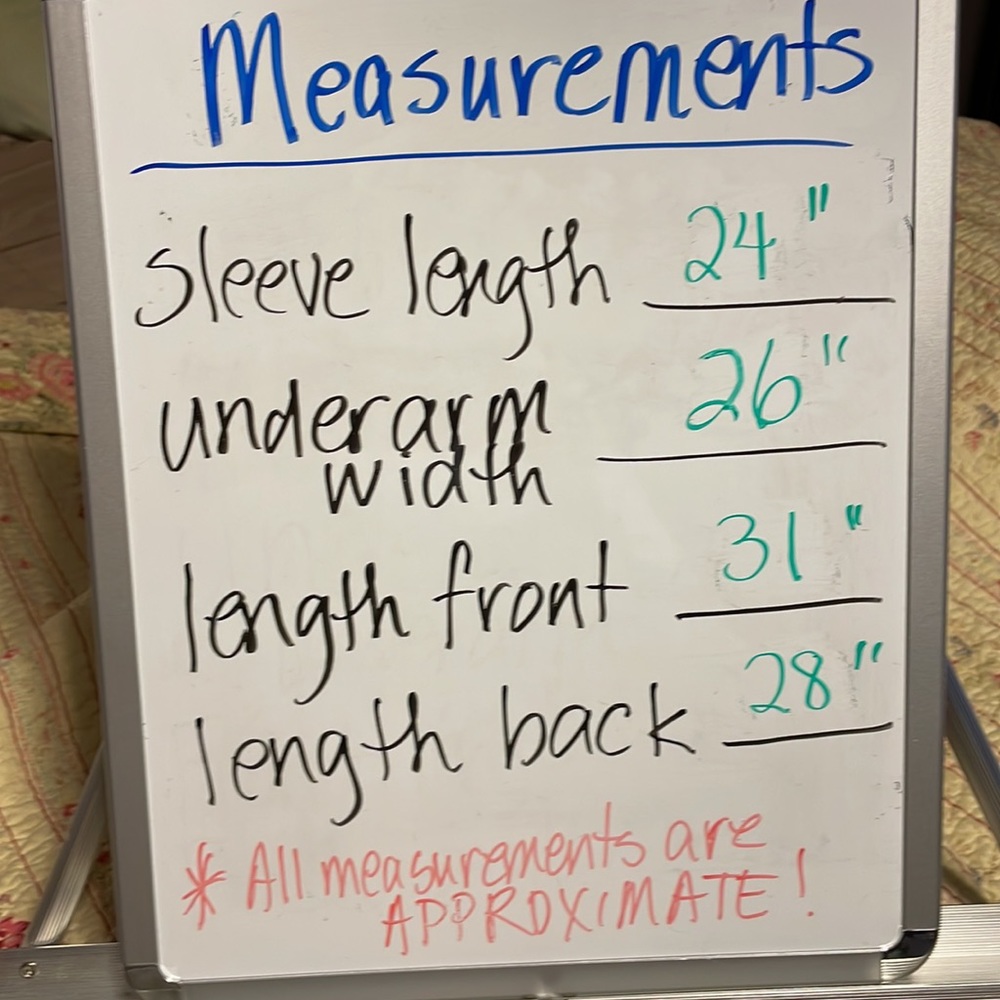 Measurements
sleeve length 24"
underarm width 26"
length front 31"
length back 28"
* All measurements are
APPROXIMATE!